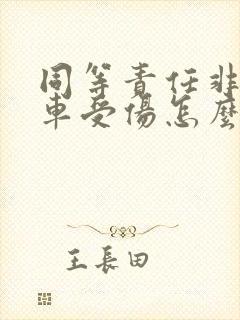 同等責任非
車受傷怎麼
王長田